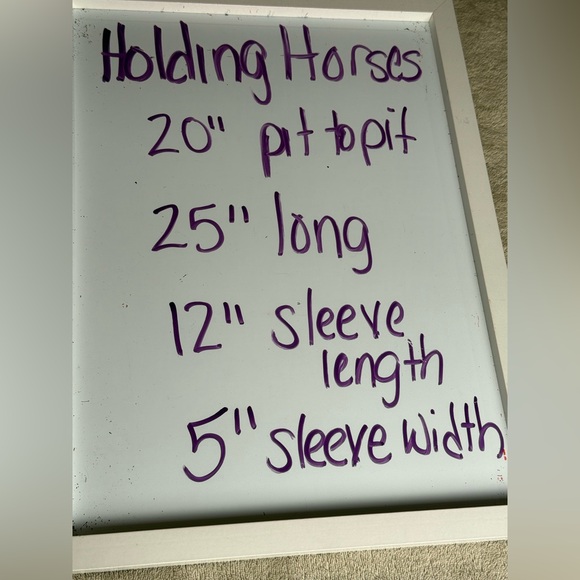 Holding Horses
20" pit to pit
25" long
12" sleeve
length
5" sleeve width